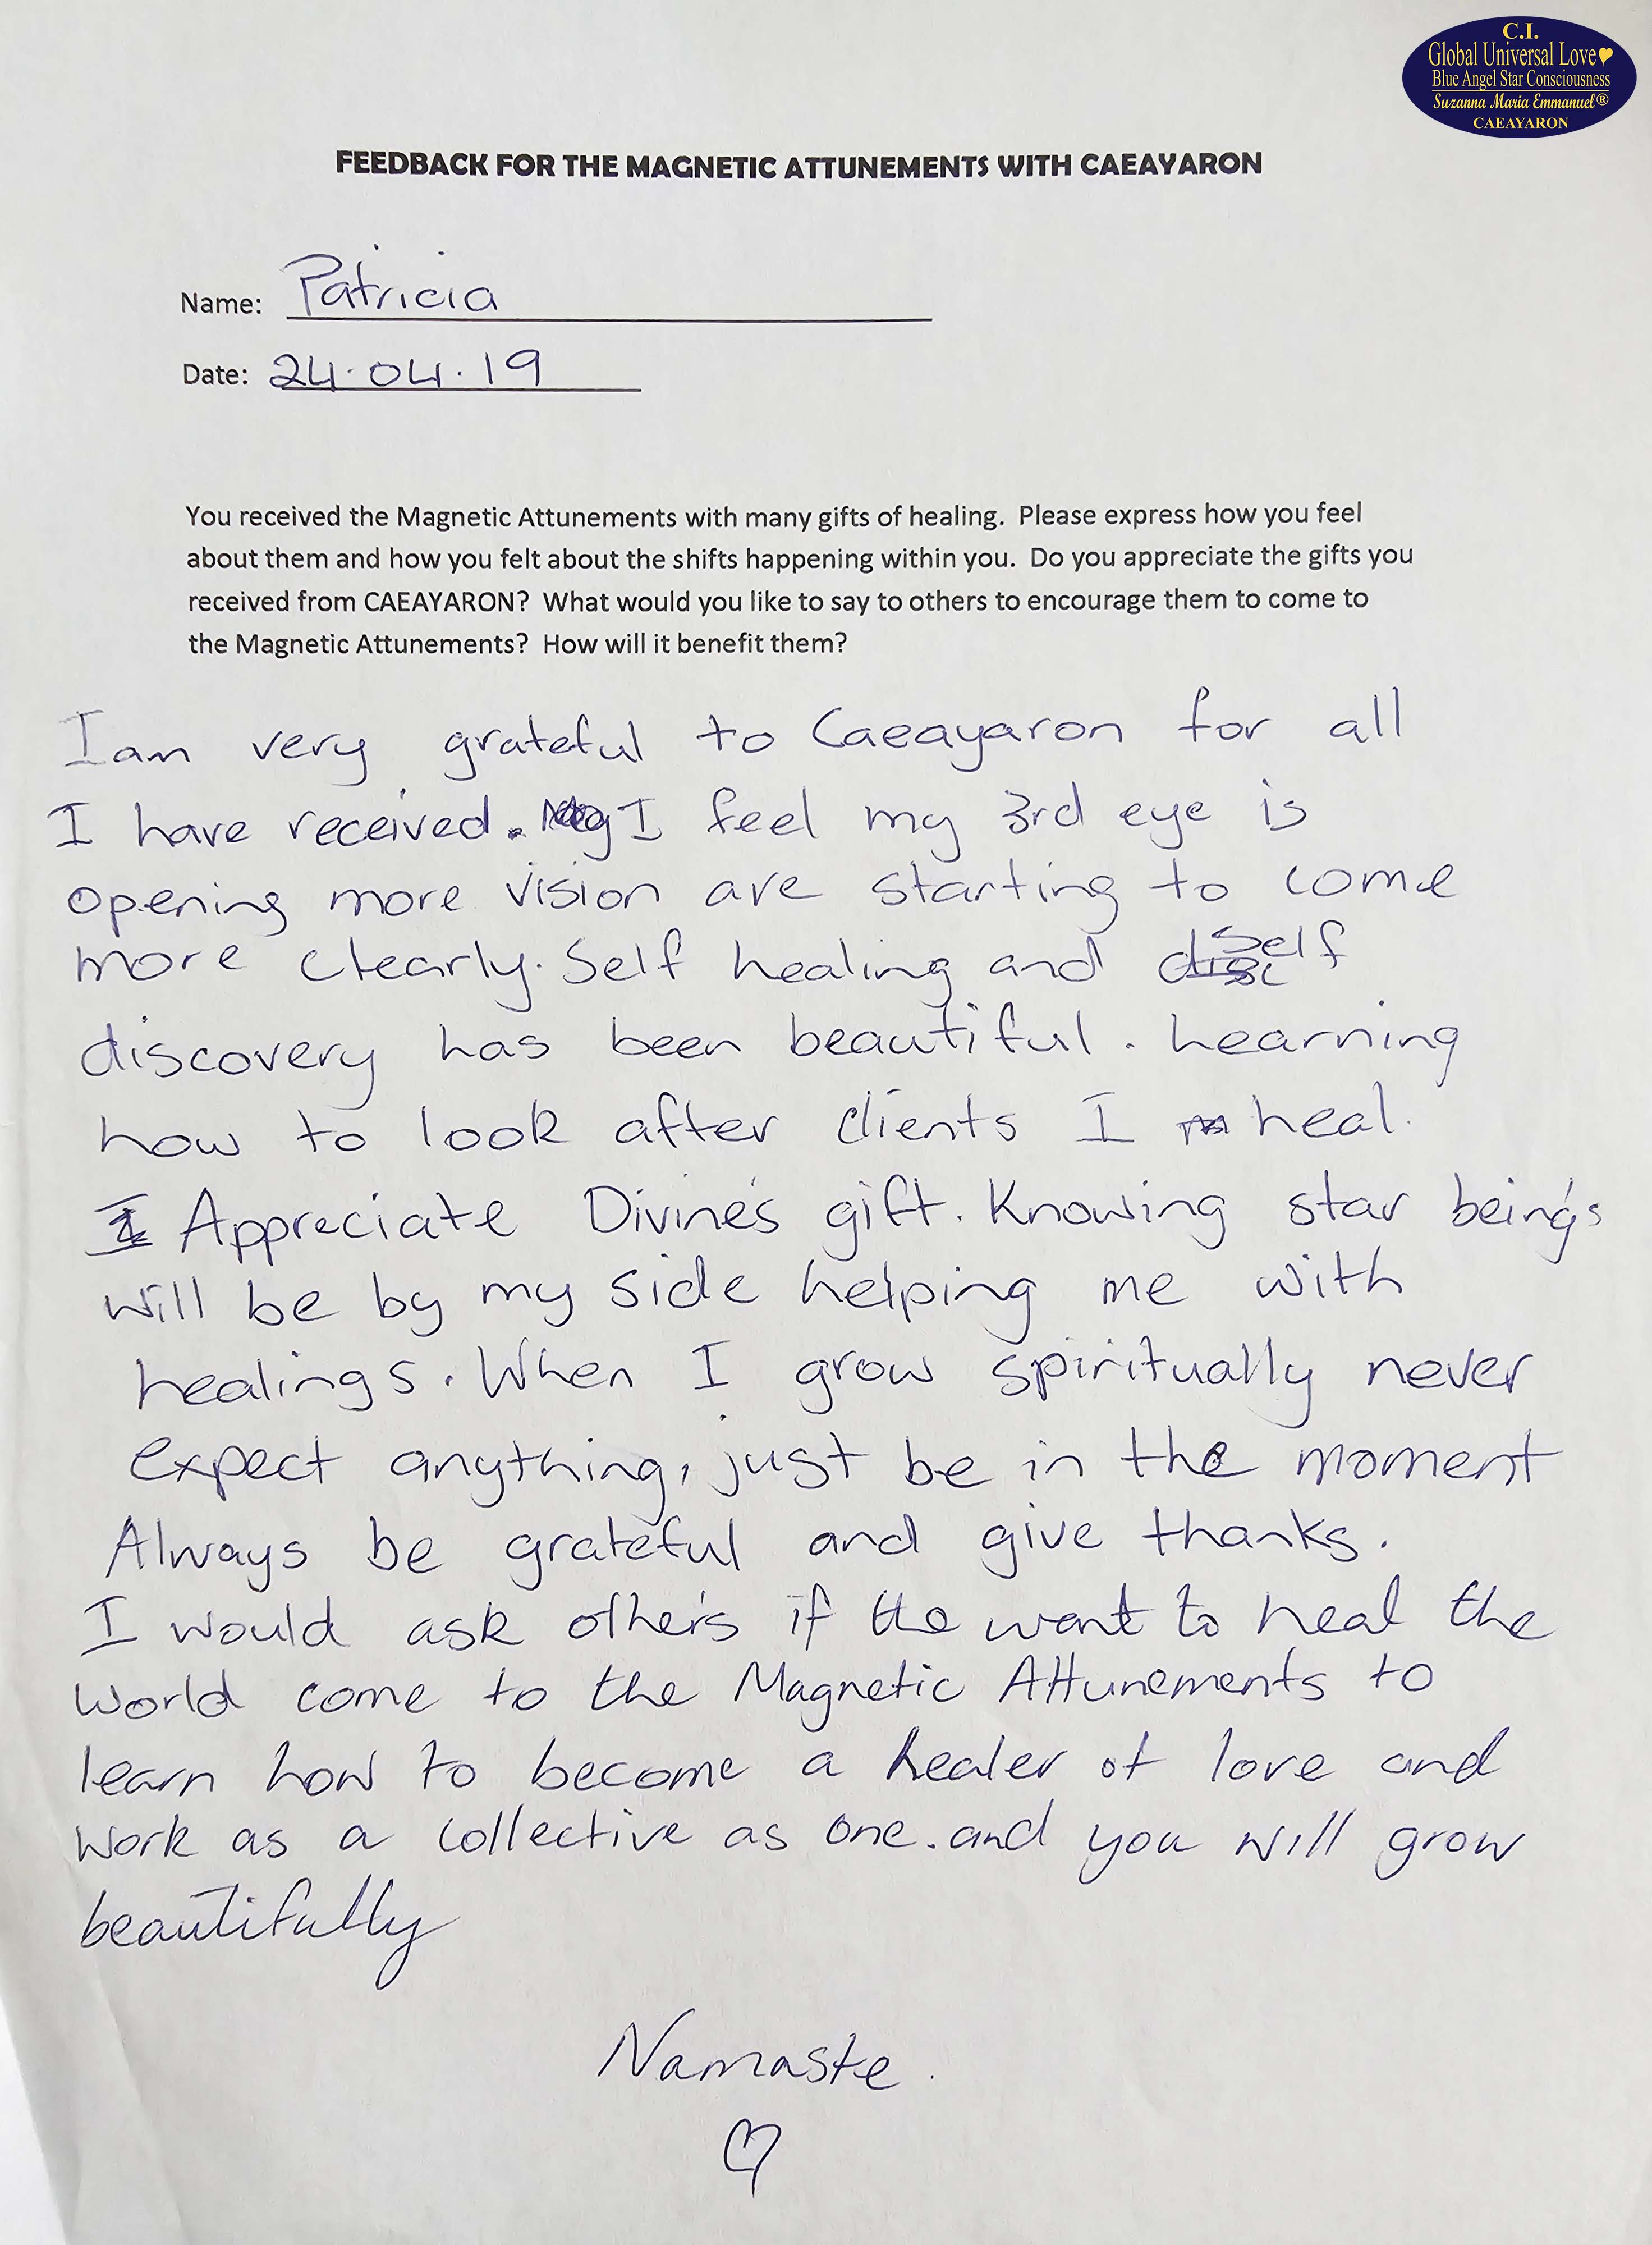 C.I.
Global Universal Love
Blue Angel Star Consciousness
Suzanna Maria Emmanuel®
CAEAYARON
FEEDBACK FOR THE MAGNETIC ATTUNEMENTS WITH CAEAYARON
Name: Patricia
Date: 24.04.19
You received the Magnetic Attunements with many gifts of healing. Please express how you feel
about them and how you felt about the shifts happening within you. Do you appreciate the gifts you
received from CAEAYARON? What would you like to say to others to encourage them to come to
the Magnetic Attunements? How will it benefit them?
I am very grateful to Caeayaron for all
I have received. I feel my 3rd eye is
opening more vision are starting to come
more clearly. Self healing and self
discovery has been beautiful. Learning
how to look after clients I heal.
Appreciate Divine's gift. Knowing star being's
will be by my side helping me with
healings. When I grow spiritually never
expect anything, just be in the moment
Always be grateful and give thanks.
I would ask other's if the want to heal the
world come to the Magnetic Attunements to
learn how to become a healer of love and
work as a collective as one. and you will grow
beautifully
Namaste.